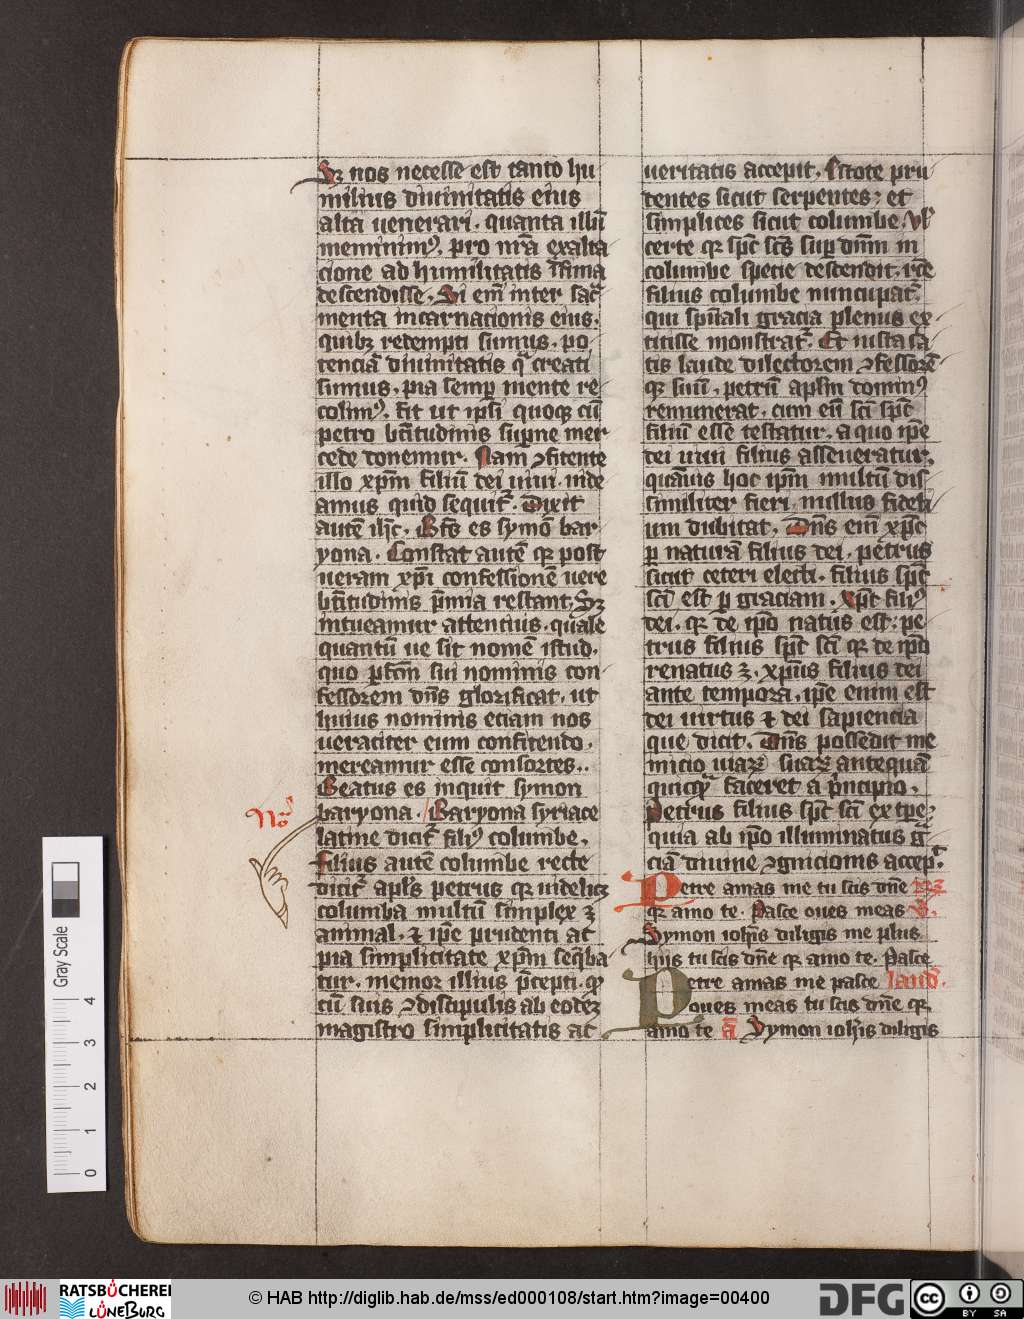 Sꝫ nos necesse est tanto hu
milius diuinitatis eius
alta uenerari. quanta illū
meminimꝰ. pro nr̄a exalta
cione ad humilitatis īfima
descendisse. Si em̄ inter sac̄
menta incarnacionis eius.
quibꝫ redempti sumus. po
tenciā diuinitatis qͣ creati
sumus. pia semꝑ mente re
colimꝰ. fit ut ip̄si quoqꝫ cū
petro bt̄itudinis suꝑne mer
cede donemur. Nam ꝯfitente
illo xp̄m filiū dei uiui. uide
amus quid sequit᷑. Dixit
autē ih̄c. Bt̄s es symō bar
yona. Constat autē qꝫ post
ueram xp̄i confessionē uere
bt̄itudinis p̄mia restant. Sꝫ
intueamur attentius. quale
quantū ue sit nomē istud.
quo ꝑfcm̄ sui nominis con
fessorem dn̄s glorificat. ut
huius nominis eciam nos
ueraciter eum confitendo.
mereamur esse consortes.
Beatus es inquit symon
baryona. Baryona syriace
latine dicit᷑ filiꝰ columbe.
filius autē columbe recte
dicit᷑ apl̄s petrus qꝫ uidelicꝫ
columba multū simplex ꝫ
animal. ⁊ ip̄e prudenti ac
pia simplicitate xp̄m seq̄ba
tur. memor illius p̄cepti. qꝫ
cū suis ꝯdiscipulis ab eodeꝫ
magistro simplicitatis ac
Noͣ
ueritatis accepit. Estote pru
dentes sicut serpentes; et
simplices sicut columbe. Vl̄
certe qꝫ sp̄c sc̄s suꝑ dn̄m in
columbe specie descendit. rc̄e
filius columbe nuncupat᷑.
qui spūali gracia plenus ex
titisse monstrat᷑. Et iusta sa
tis laude dilectorem ꝯfessorē
qꝫ suū. petrū apl̄m dominꝰ
remunerat. cum eū sc̄i sp̄c
filiū esse testatur. a quo ip̄e
dei uiui filius asseueratur.
quāuis hoc ip̄m multū dis
similiter fieri. nullus fideli
um dubitat. Dn̄s em̄ xp̄c
ꝑ naturā filius dei. petrus
sicut ceteri electi. filius sp̄c
sc̄i est ꝑ graciam. Xp̄c filiꝰ
dei. qꝫ de ip̄o natus est: pe
trus filius sp̄c sc̄i qꝫ de ip̄o
renatus ꝫ. xp̄us filius dei
ante tempora. ip̄e enim est
dei uirtus ⁊ dei sapiencia
que dicit. Dn̄s possedit me
inicio uiaꝝ suaꝝ antequā
quicqͣ faceret a p̄ncipio.
Petrus filius sp̄c sc̄i ex tp̄e;
quia ab ip̄o illuminatus gͣ
ciā diuine ꝯgnicionis accep.ͭ
Petre amas me tu scis dn̄e
qꝫ amo te. Pasce oues meas V̄.
Symon ioh̄is diligis me plus
hijs tu scis dn̄e qꝫ amo te. Pasce
Petre amas me pasce laud̄.
oues meas tu scis dn̄e qꝫ
amo te ā Symon ioh̄is diligis
Gray Scale
4
3
2
1
0
RATSBÜCHEREI
LÜNEBURG
© HAB http://diglib.hab.de/mss/ed000108/start.htm?image=00400
DFG
cc
BY SA